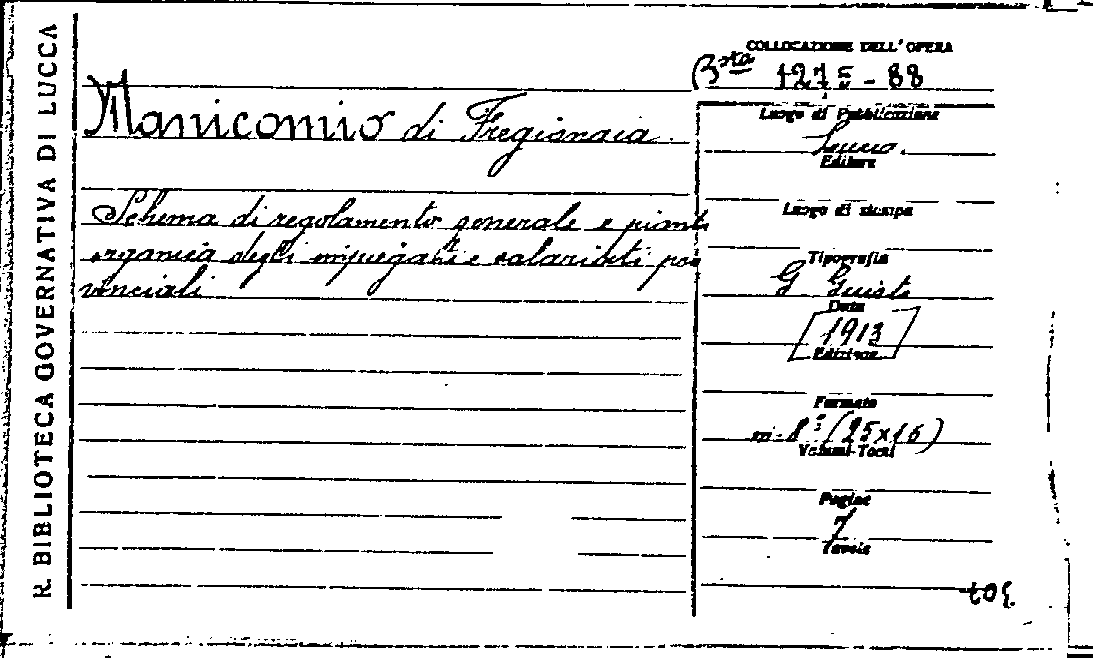 R. BIBLIOTECA GOVERNATIVA DI LUCCA
Manicomio di Fregionaia
Schema di regolamento generale e piant
organica degli impiegati e salariati pro
vinciali
COLLOCAZIONE DELL'OPERA
Bsta 1275-88
Luogo di Pubblicazione
Lucca.
Editore
Luogo di stampa
Tipografia
G Giusti
Data
1913
Edizione
Formato
in-8° (25x16)
Volumi-Tomi
Pagine
7
Tavole